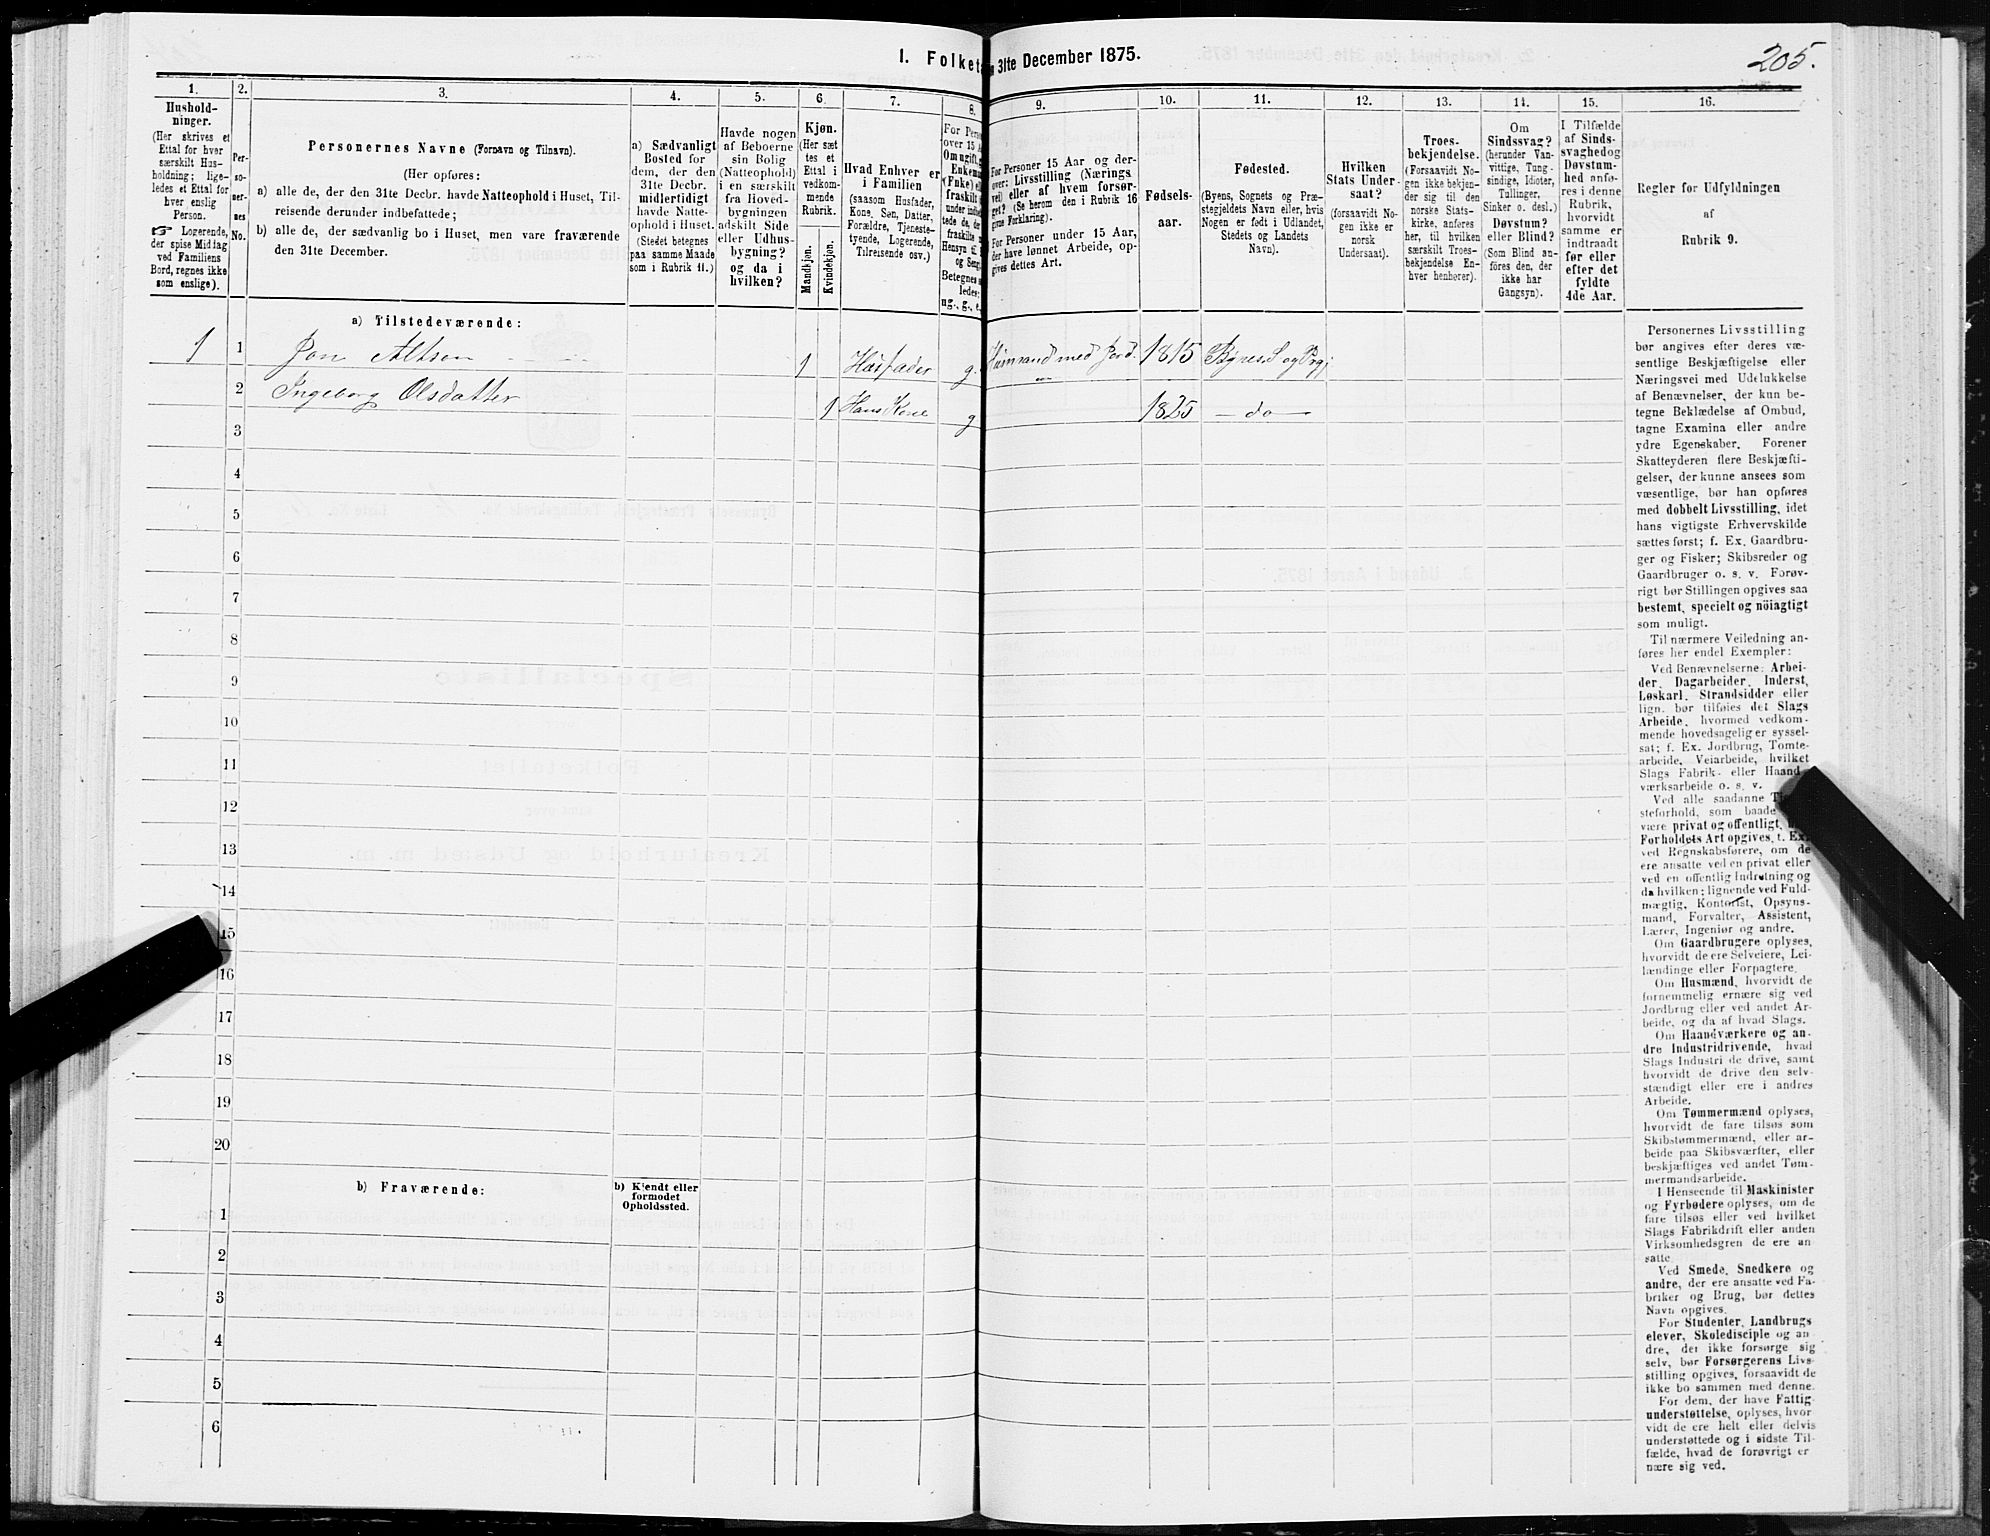 205.
I. Folketa
n 31te December 1875.
1.
2.
3.
4.
5.
6.
7.
8.
9.
10.
11.
12.
13.
14.
15.
16.
Hushold-
ninger.
(Her skrives et
Ettal for hver
særskilt Hus-
holdning; lige-
ledes et Ettal for
hver enslig
Person.
☞ Logerende,
der spise Middag
ved Familiens
Bord, regnes ikke
som enslige).
Per-
so-
ner-
nes
No.
Personernes Navne (Fornavn og Tilnavn).
(Her opføres:
a) alle de, der den 31te Decbr. havde Natteophold i Huset, Til-
reisende derunder indbefattede;
b) alle de, der sædvanlig bo i Huset, men vare fraværende
den 31te December.
a) Sædvanligt
Bosted for
dem, der den
31te Decbr.
midlertidigt
havde Natte-
ophold i Huset.
(Stedet betegnes
paa samme Maade
som i Rubrik 11.)
Havde nogen
af Beboerne
sin Bolig
(Natteophold)
i en særskilt
fra Hoved-
bygningen
adskilt Side
eller Udhus-
bygning?
og da i
hvilken?
Kjøn.
(Her sæt
tes et
Ettal i
vedkom-
mende
Rubrik.
Mandkjøn.
Kvindekjøn.
Hvad Enhver er
i Familien
(saasom Husfader,
Kone, Søn, Datter,
Forældre, Tjeneste-
tyende, Logerende,
Tilreisende osv.)
For Pers
over 15 A
Om ugift,
Enkema
(Fnke) el
fraskilt
under indb
tede de, de
fraskilte
Hensyn til
og Seng
Betegnes s
ledes:
ug., g., e.
For Personer 15 Aar og der-
over: Livsstilling (Nærings
vei) eller af hvem forsør-
get? (Se herom den i Rubrik 16
givne Forklaring).
For Personer under 15 Aar,
der have lønnet Arbeide, op-
gives dettes Art.
Fødsels-
aar.
Fødested.
(Byens, Sognets og Præ-
stegjeldets Navn eller, hvis
Nogen er født i Udlandet,
Stedets og Landets
Navn).
Hvilken
Stats Under-
saat?
(forsaavidt No-
gen ikke er
norsk
Undersaat).
Troes-
bekjendelse.
(Forsaavidt No-
gen ikke bekjen-
der sig til den
norske Stats-
kirke, anføres
her, til hvilken
særskilt Troes-
bekjendelse En-
hver henhører).
Om
Sindssvag?
(herunder Van-
vittige, Tung-
sindige, Idioter,
Tullinger,
Sinker o. desl.)
Døvstum?
eller Blind?
(Som Blind an-
føres den, der
ikke har
Gangsyn).
I Tilfælde
af Sinds-
svaghedog
Døvstum-
hed anfø-
res i denne
Rubrik,
hvorvidt
samme er
indtraadt
før eller
efter det
fyldte
4de Aar.
Regler for Udfyldningen
af
Rubrik 9.
a) Tilstedeværende:
1 1 Jon Altson 1 Husfader g. Husmand med Jord. 1815 Bynes S og Prgj
2 Ingeborg Olsdatter 1 Hans Kone g 1825 — do —
3
4
5
6
7
8
9
10
11
12
13
14
15
16
17
18
19
20
b) Fraværende:
b) Kjendt eller
formodet
Opholdssted.
1
2
3
4
5
6
Personernes Livsstilling
bør angives efter deres væ-
sentlige Beskjæftigelse eller
Næringsvei med Udelukkelse
af Benævnelser, der kun be-
tegne Beklædelse af Ombud,
tagne Examina eller andre
ydre Egenskaber. Forener
Skatteyderen flere Beskjæfti-
gelser, der kunne ansees som
væsentlige, bør han opføres
med dobbelt Livsstilling, idet
hans vigtigste Erhvervskilde
sættes først; f. Ex. Gaardbru-
ger og Fisker; Skibsreder og
Gaardbruger o. s. v. Forøv-
rigt bør Stillingen opgives saa
bestemt, specielt og nöiagtigt
som muligt.
Til nærmere Veiledning an-
føres her endel Exempler:
Ved Benævnelserne: Arbei-
der, Dagarbeider, Inderst,
Løskarl, Strandsidder eller
lign. bør tilføies det Slags
Arbeide, hvormed vedkom-
mende hovedsagelig er syssel-
sat; f. Ex. Jordbrug, Tomte-
arbeide, Veiarbeide, hvilket
Slags Fabrik- eller Haand-
værksarbeide o. s. v.
Ved alle saadanne
steforhold, som baade
være privat og offentligt,
Forholdets Art opgives, t. Ex.
ved Regnskabsførere, om de
ere ansatte ved en privat eller
ved en offentlig Indretning og
da hvilken; lignende ved Fuld-
mægtig, Kontorist, Opsyns-
mand, Forvalter, Assistent,
Lærer, Ingeniør og andre.
Om Gaardbrugere oplyses,
hvorvidt de ere Selveiere, Lei-
lændinge eller Forpagtere.
Om Husmænd, hvorvidt de
fornemmelig ernære sig ved
Jordbrug eller ved andet Ar-
beide, og da af hvad Slags.
Om Haandværkere og an-
dre Industridrivende, hvad
Slags Industri de drive, samt
hvorvidt de drive den selv-
stændigt eller ere i andres
Arbeide.
Om Tømmermænd oplyses,
hvorvidt de fare tilsøs som
Skibstømmermænd, eller ar-
beide paa Skibsværfter, eller
beskjæftiges ved andet Tøm-
mermandsarbeide.
I Henseende til Maskinister
og Fyrbødere oplyses, om de
fare tilsøs eller ved hvilket
Slags Fabrikdrift eller anden
Virksomhedsgren de ere an
satte.
Ved Smede, Snedkere og
andre, der ere ansatte ved Fa-
briker og Brug, bør dettes
Navn opgives.
For Studenter, Landbrugs
elever, Skoledisciple og an-
dre, der ikke forsørge sig
selv, bør Forsørgerens Livs-
stilling opgives, forsaavidt de
ikke bo sammen med denne.
For dem, der have Fattig-
understøttelse, oplyses, hvor
vidt de ere helt eller delvis
understøttede og i sidste Til-
fælde, hvad de forøvrigt er
nære sig ved.